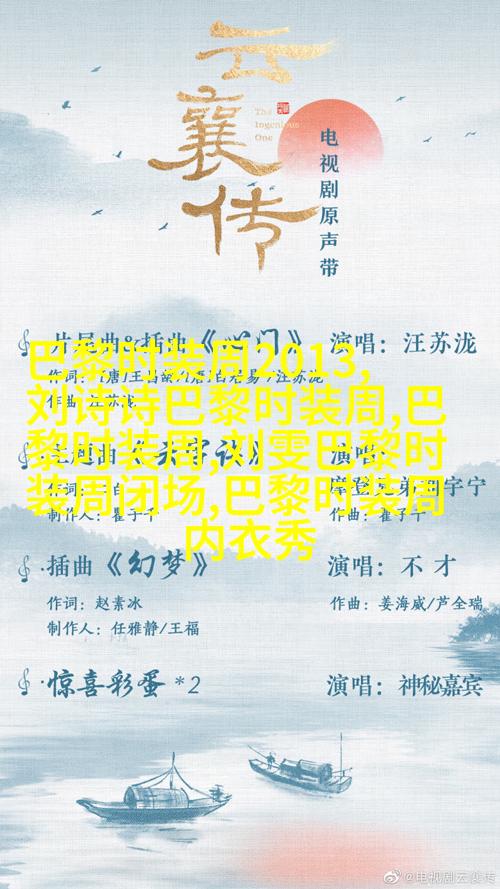 云襄传
The
Ingenious
One
电视剧原声带
片尾曲&插曲《心门》 演唱：汪苏泷
作曲：汪苏泷
巴黎时装周2013,
刘诗诗巴黎时装周,巴
黎时装周,刘雯巴黎时
装周闭场,巴黎时装周
内衣秀
插曲《幻梦》 演唱：不才
作词：赵素冰 作曲：姜海威/芦全瑞
制作人：任雅静/王福
惊喜彩蛋 *2 演唱：神秘嘉宾
@电视剧云襄传